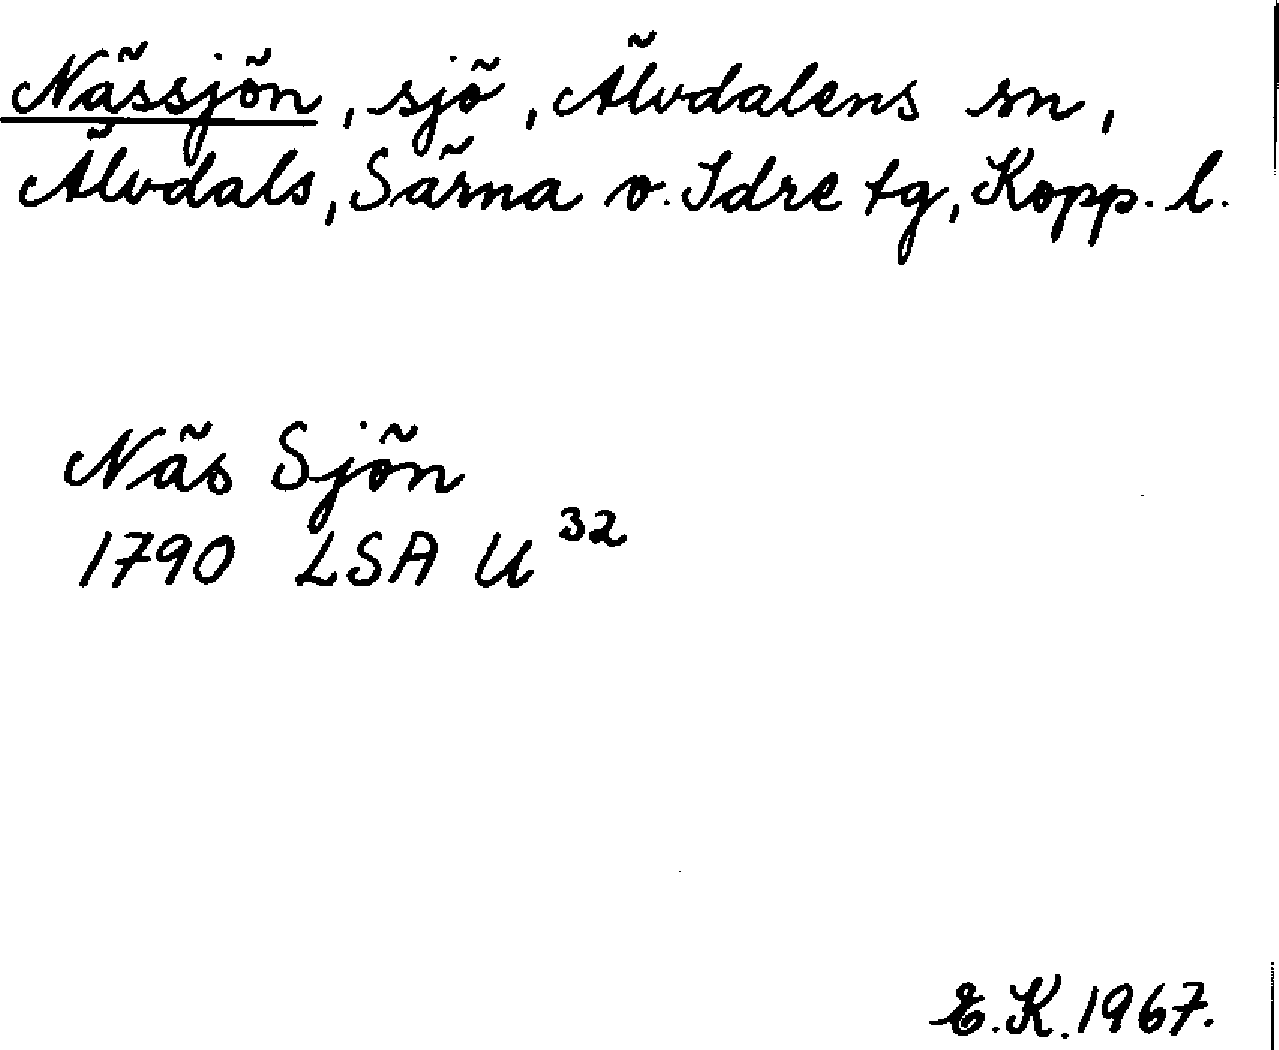 Nässjön, sjö, Älvdalens sn,
Älvdals, Särna o. Idre tg, Kopp. l.
Näs Sjön
1790 LSA U³²
E.K. 1967.